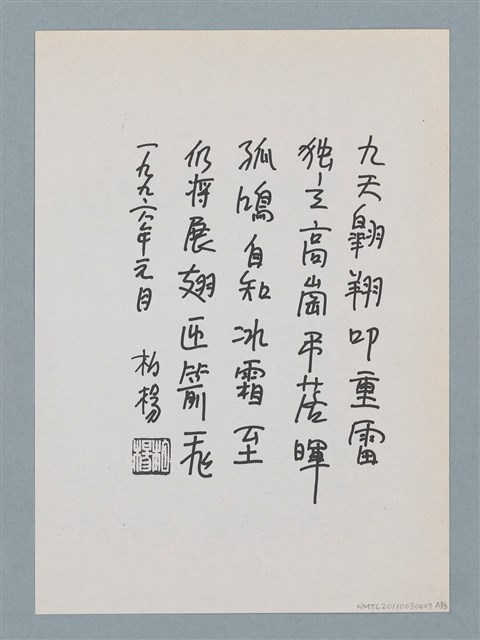 九天翱翔叩重雷
独立高崗弔落暉
孤鳴自知冰霜至
仍將展翅迎箭飛
一九九六年元月
柏楊
柏楊
NMTL20110030009